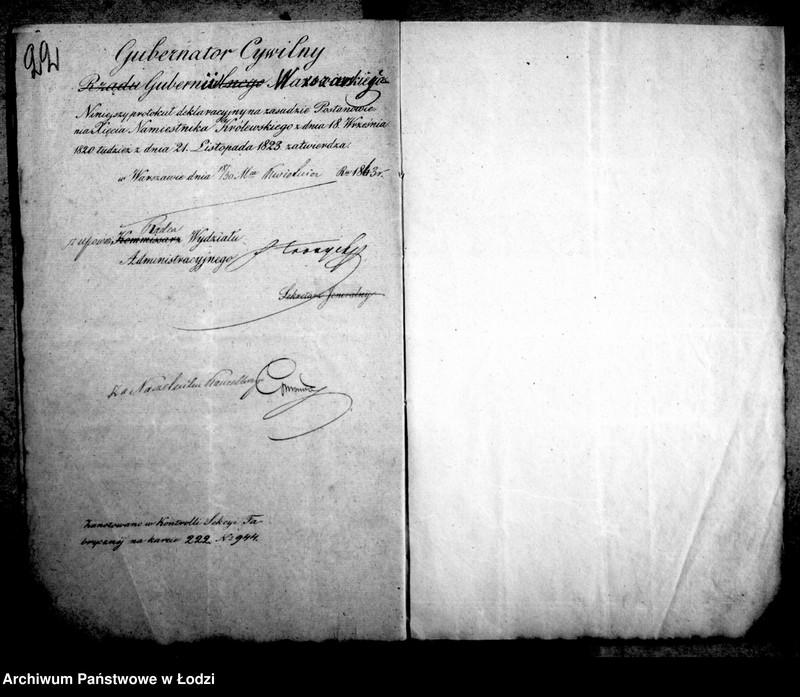 22
Gubernator Cywilny
Rządu Gubernii Warszawskiego
Niniejszy protokuł deklaracyjny na zasadzie Postanowie-
nia Xięcia Namiestnika Królewskiego z dnia 18. Września
1820 tudzież z dnia 21. Listopada 1823 zatwierdza.
w Warszawie dnia 18/30 M-ca Kwietnia Ro 1863 r.
Radca
z upow. Kommissarz Wydziału
Administracyjnego
Sekretarz Jeneralny
Za Naczelnika Kancellaryi
Zanotowano w Kontrolli Sekcyi Fa-
brycznéj na karcie 222 No 944.
Archiwum Państwowe w Łodzi